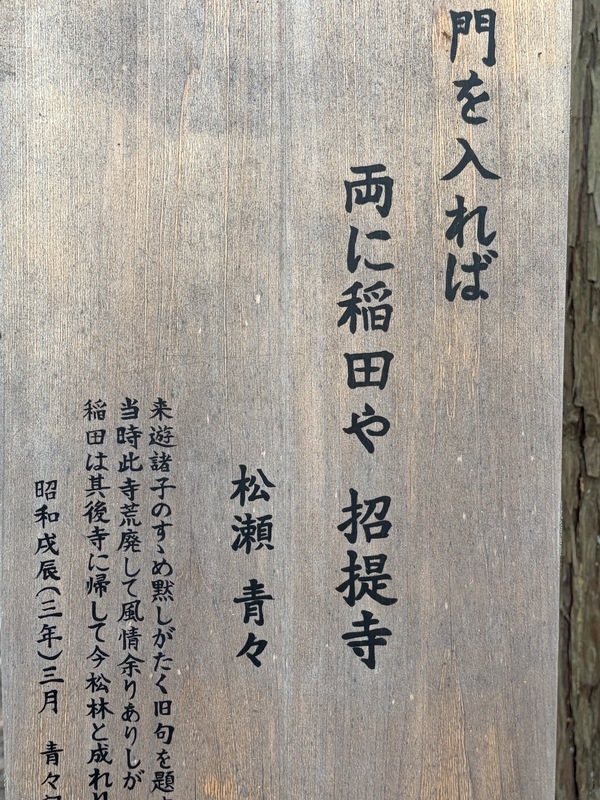 門を入れば
両に稲田や 招提寺
松瀬 青々
来遊諸子のすゝめ黙しがたく旧句を題
当時此寺荒廃して風情余りありしが
稲田は其後寺に帰して今松林と成れり
昭和戌辰(三年)三月 青々